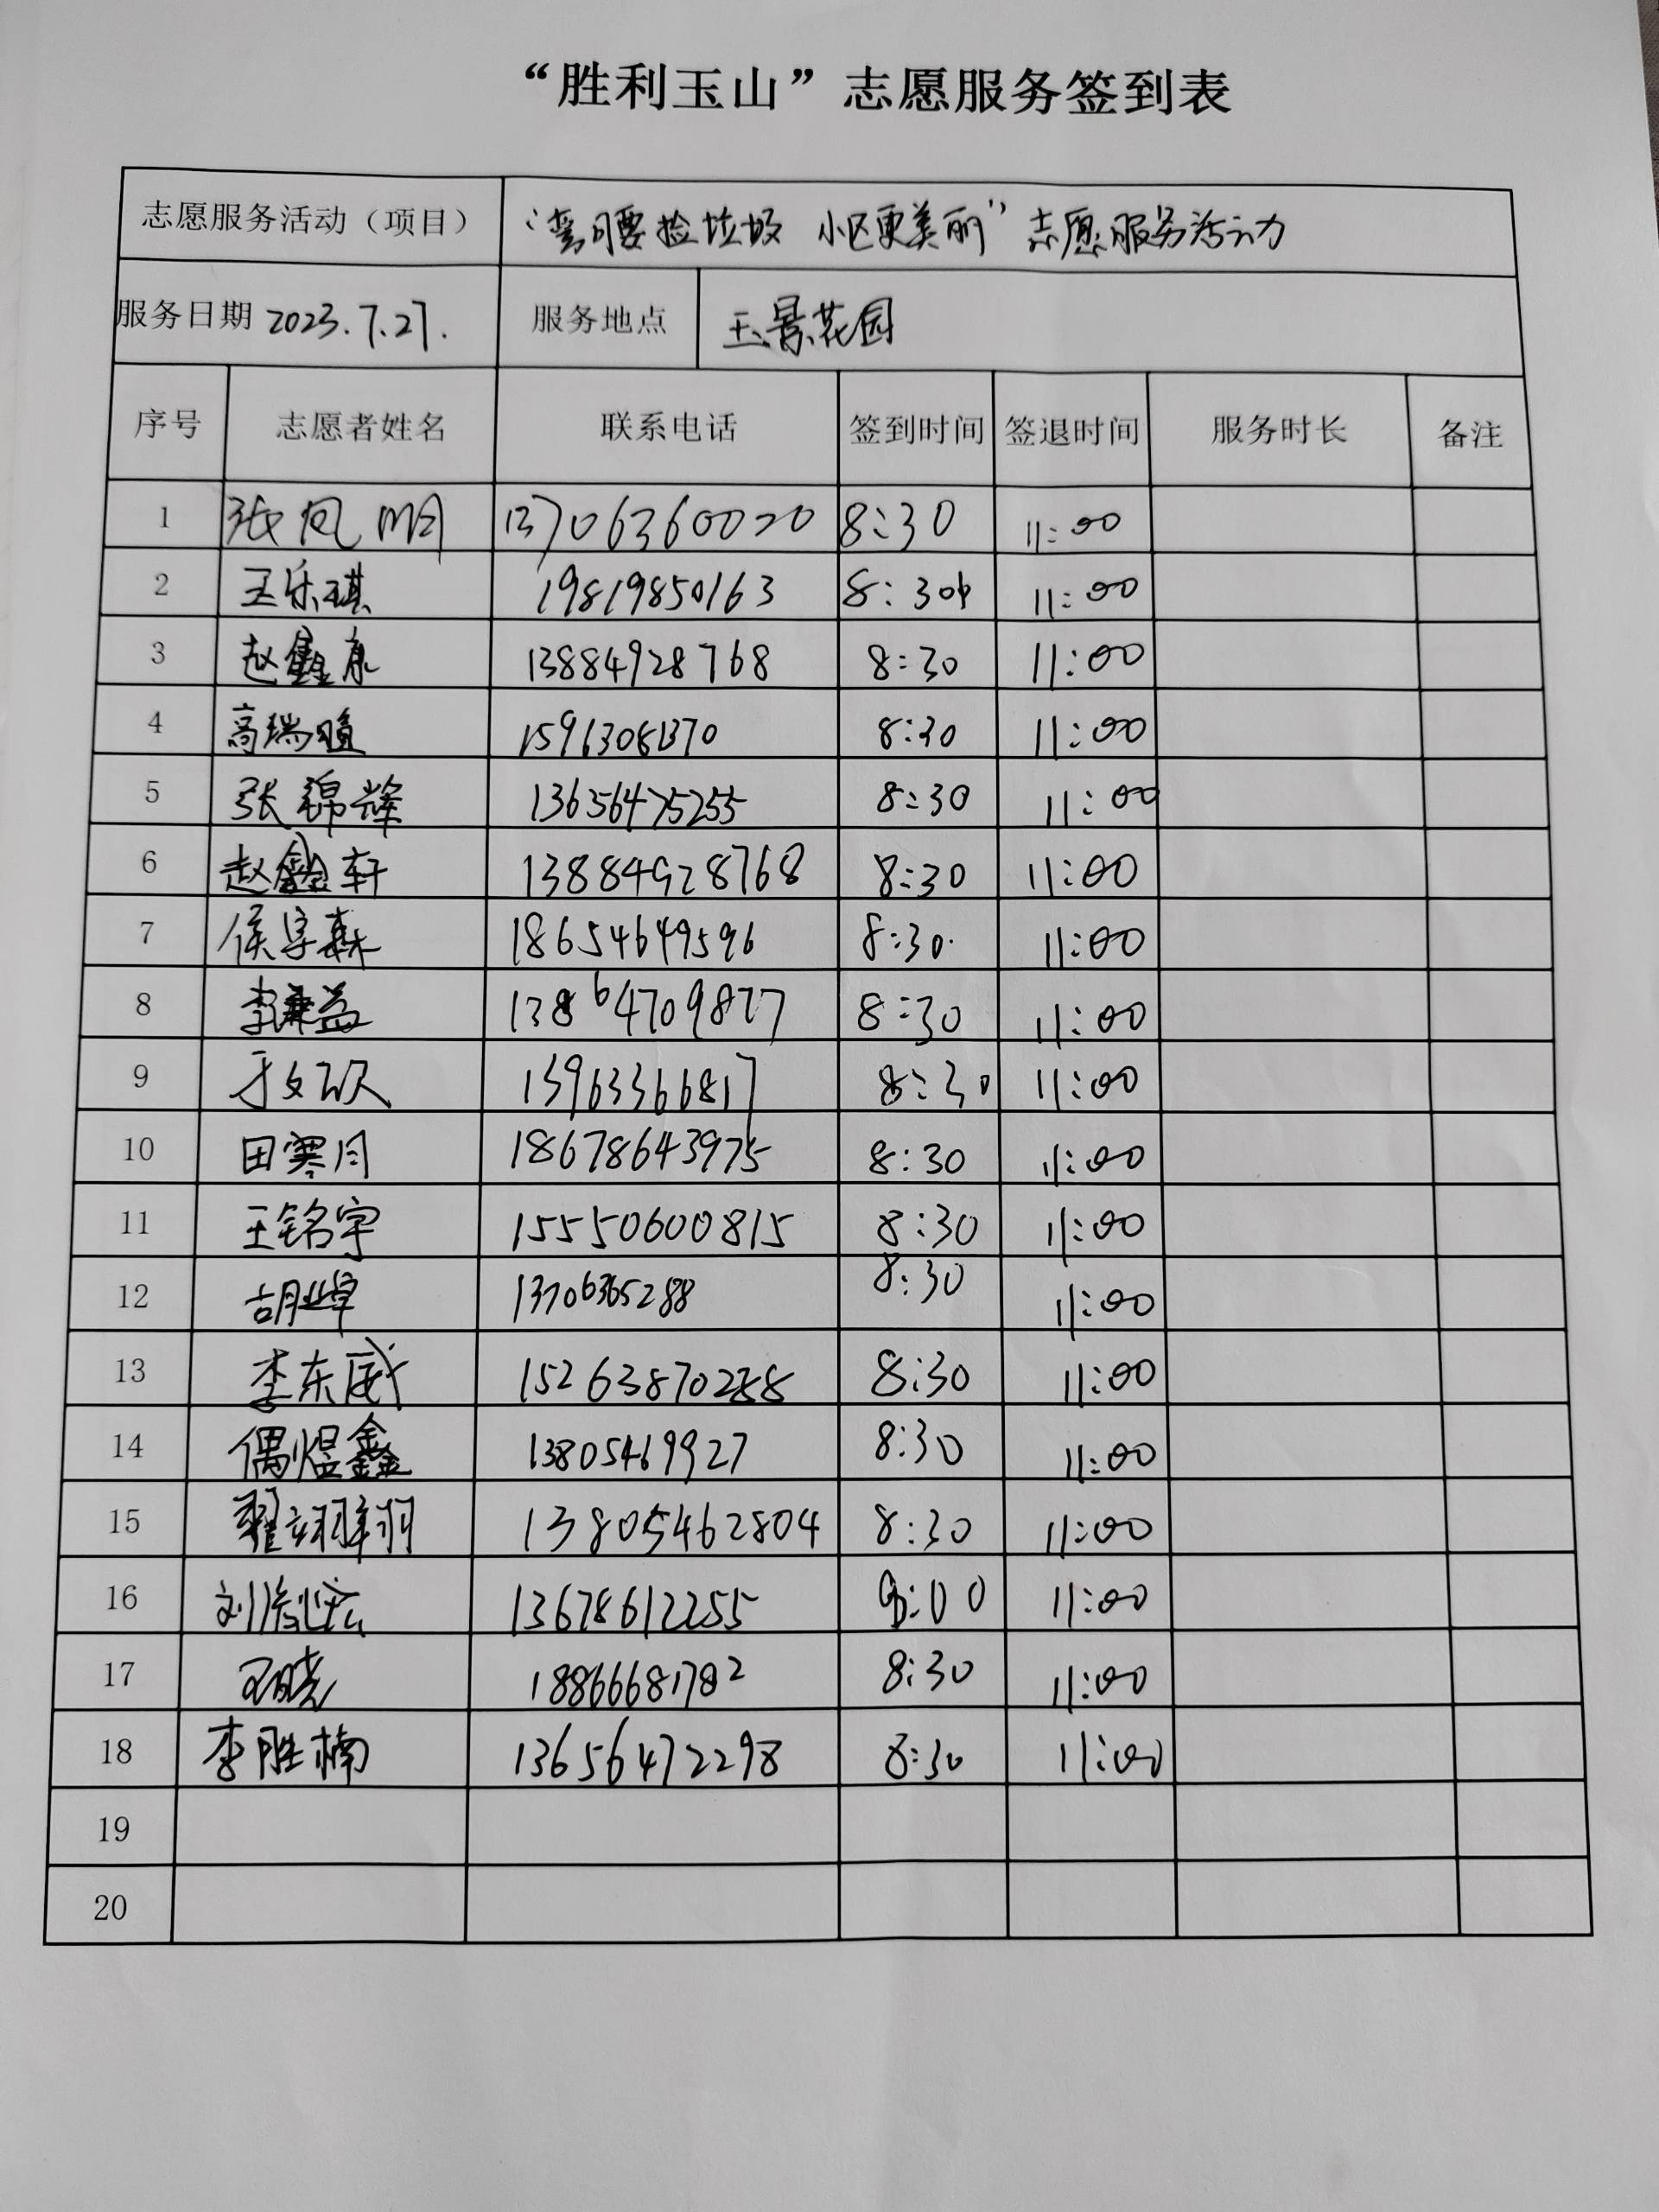 “胜利玉山”志愿服务签到表
志愿服务活动（项目） “弯腰捡垃圾 小区更美丽”志愿服务活动
服务日期 2023.7.27. 服务地点 玉景花园
序号 志愿者姓名 联系电话 签到时间 签退时间 服务时长 备注
1 张凤明 13706360020 8:30 11:00
2 王乐琪 19819850163 8:30 11:00
3 赵鑫康 13884928768 8:30 11:00
4 高瑞 15963081370 8:30 11:00
5 张锦辉 13656475255 8:30 11:00
6 赵鑫轩 13884928768 8:30 11:00
7 侯宇森 18654649596 8:30. 11:00
8 李谦益 13864709877 8:30 11:00
9 于文欣 13963366817 8:30 11:00
10 田寒月 18678643975 8:30 11:00
11 王铭宇 15550600815 8:30 11:00
12 胡 13706365288 8:30 11:00
13 李东威 15263870288 8:30 11:00
14 偶煜鑫 13805469927 8:30 11:00
15 翟翊翔 13805462804 8:30 11:00
16 刘 13678612255 9:00 11:00
17 18866681782 8:30 11:00
18 李胜楠 13656472298 8:30 11:00
19
20